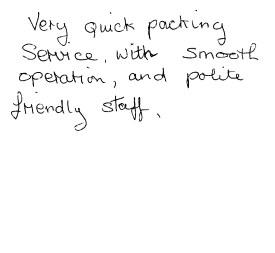 Very quick packing
Service, with smooth
operation, and polite
friendly staff.